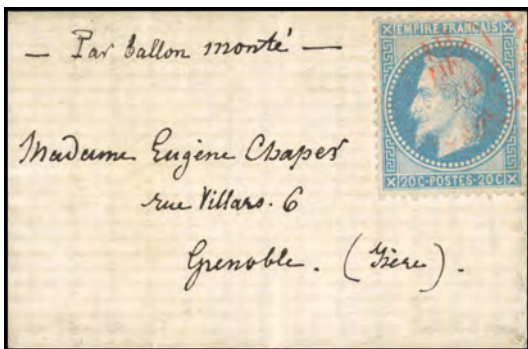 — Par ballon monté —
EMPIRE FRANÇAIS
20C·POSTES·20C
Madame Eugène Chaper
rue Villars. 6
Grenoble. (Isère).